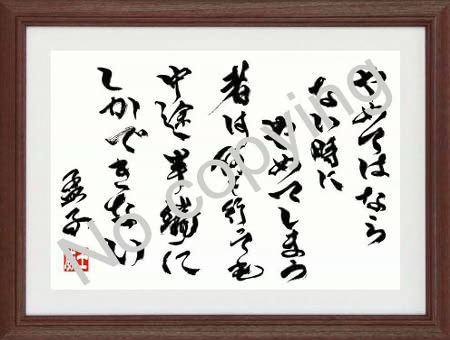 やめてはなら
ない時に
やめてしまう
者は何を行っても
中途半端に
しかできない
孟子
No copying